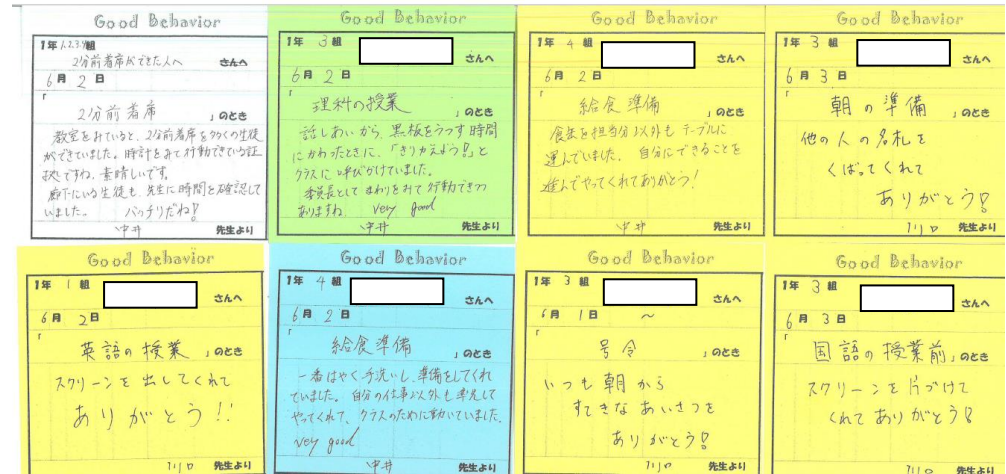 Good Behavior
1年1,2,3,4組
2分前着席ができた人へ さんへ
6月2日
「
2分前着席 」のとき
教室をみていると、2分前着席を多くの生徒
ができていました。時計をみて行動できている証
拠ですね。素晴しいです。
廊下にいる生徒も、先生に時間を確認して
いました。 バッチリだね!
中井 先生より
Good Behavior
1年 3 組
さんへ
6月2日
「
理科の授業 」のとき
話しあいから、黒板をうつす時間
にかわったときに、「きりかえよう!」と
クラスに呼びかけていました。
委員長としてまわりをみて行動できつつ
ありますね very good
中井 先生より
Good Behavior
1年 4 組
さんへ
6月2日
「
給食準備 」のとき
食缶を担当分以外もテーブルに
運んでいました。自分にできることを
進んでやってくれてありがとう!
中井 先生より
Good Behavior
1年 3 組
さんへ
6月3日
「
朝の準備 」のとき
他の人の名札を
くばってくれて
ありがとう!
川口 先生より
Good Behavior
1年 1 組
さんへ
6月2日
「
英語の授業 」のとき
スクリーンを出してくれて
ありがとう!!
川口 先生より
Good Behavior
1年 4 組
さんへ
6月2日
「
給食準備 」のとき
一番はやく手洗いし、準備をしてくれ
ていました。自分の仕事以外も率先して
やってくれて、クラスのために動いていました。
very good
中井 先生より
Good Behavior
1年 3 組
さんへ
6月1日 〜
「
号令 」のとき
いつも朝から
すてきなあいさつを
ありがとう!
川口 先生より
Good Behavior
1年 3 組
さんへ
6月3日
「
国語の授業前 」のとき
スクリーンを片づけて
くれてありがとう!
川口 先生より